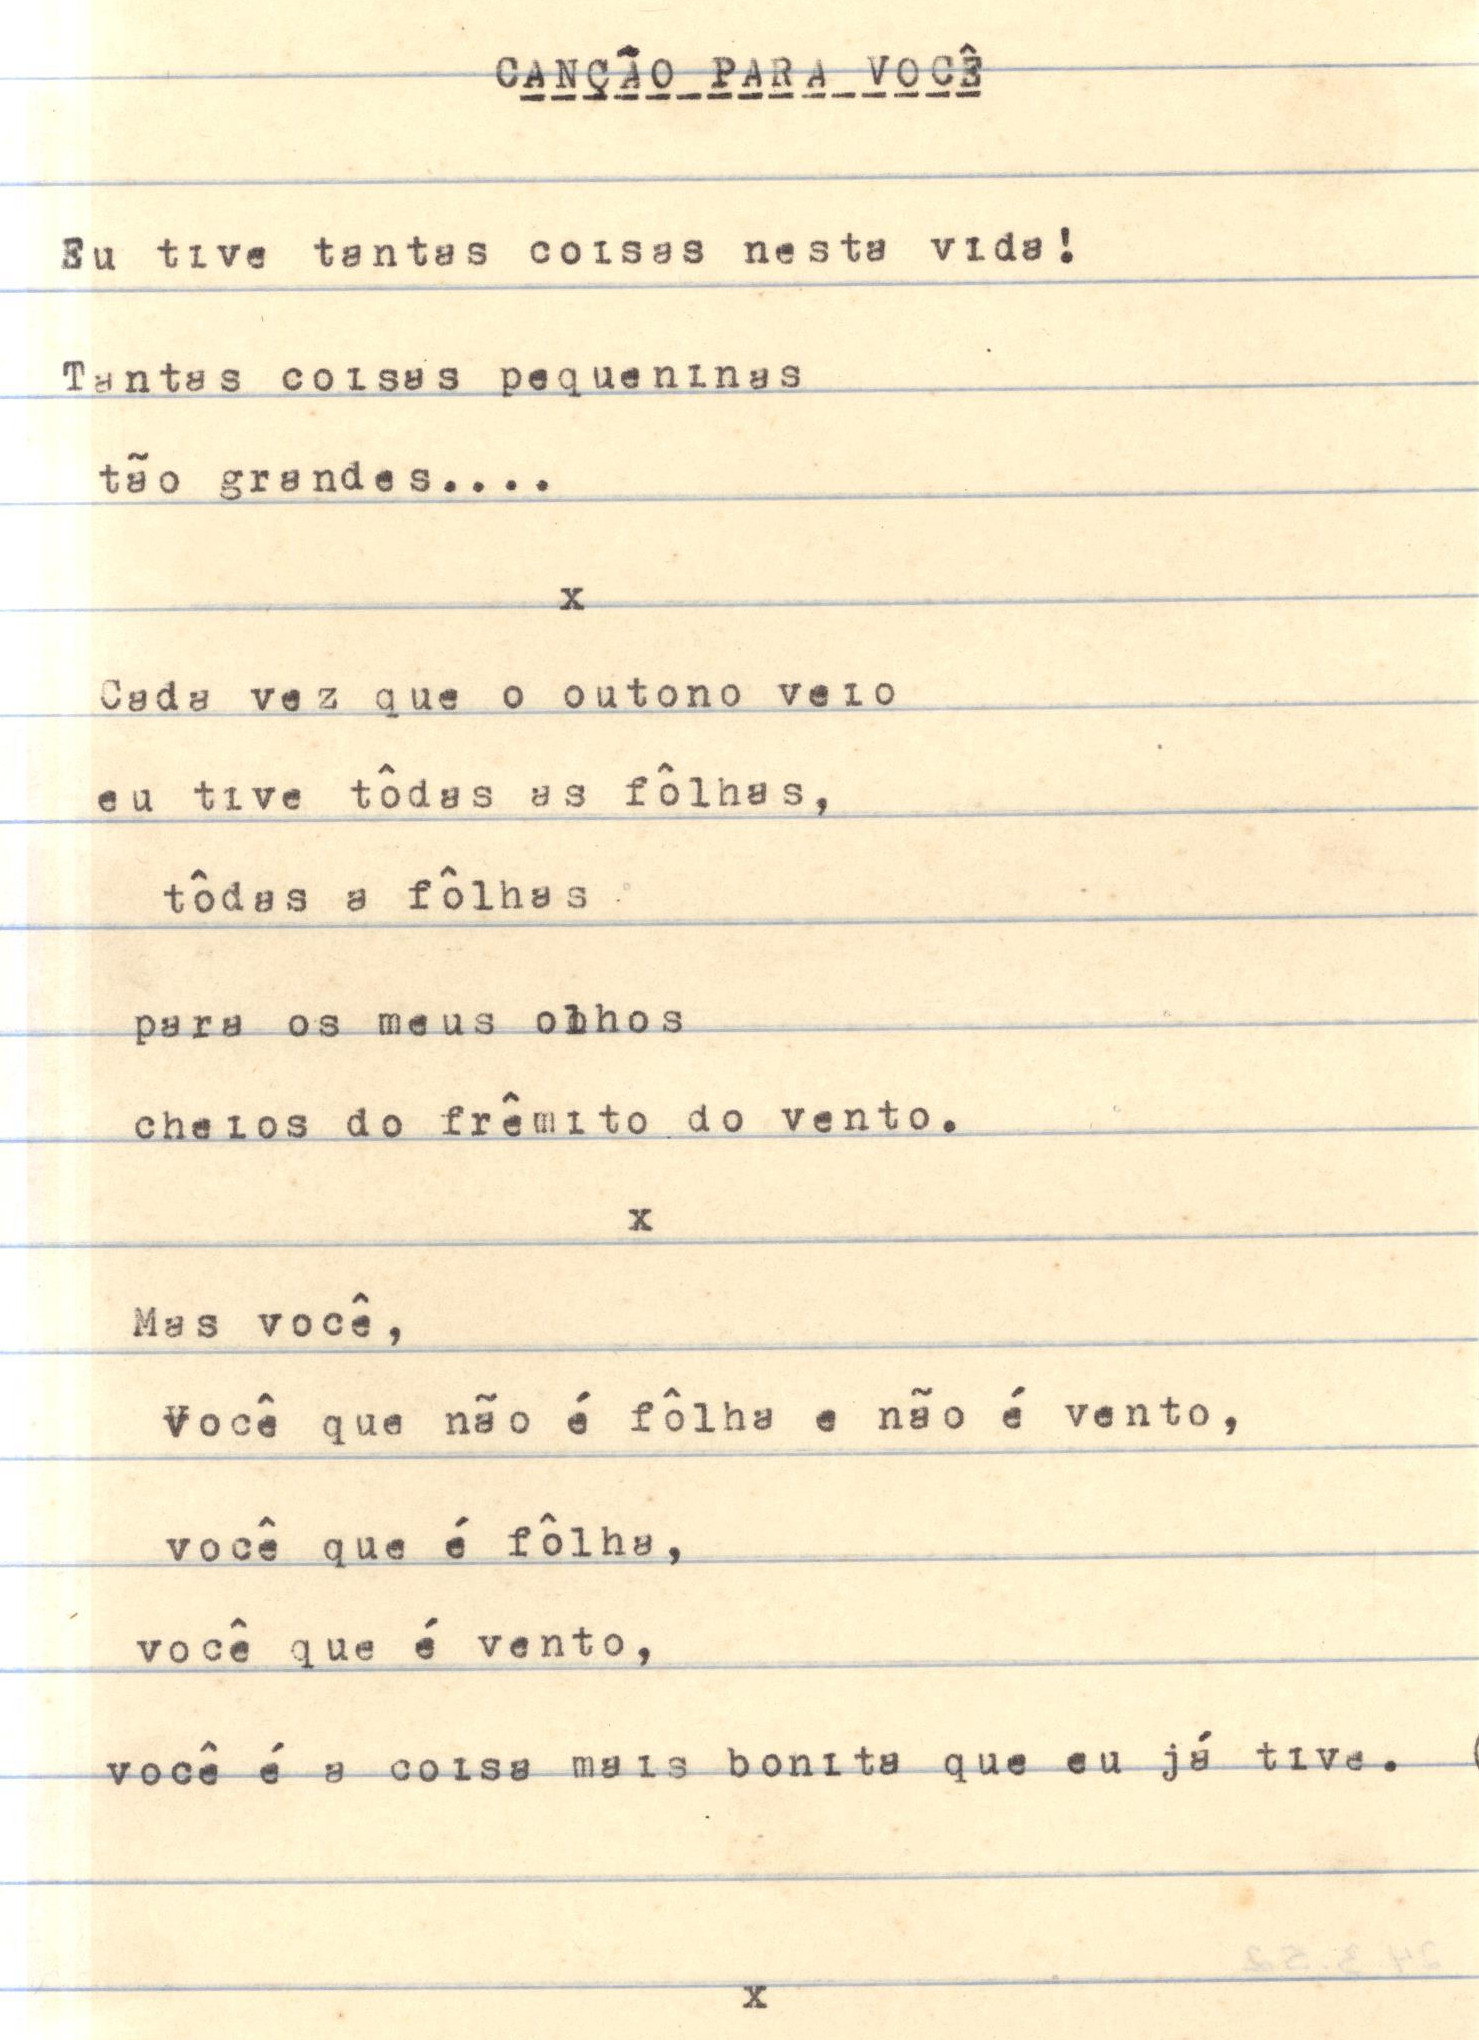 CANÇÃO PARA VOCÊ
Eu tive tantas coisas nesta vida!
Tantas coisas pequeninas
tão grandes....
x
Cada vez que o outono veio
eu tive tôdas as fôlhas,
tôdas a fôlhas
para os meus olhos
cheios do frêmito do vento.
x
Mas você,
Você que não é fôlha e não é vento,
você que é fôlha,
você que é vento,
você é a coisa mais bonita que eu já tive. (
24 3.52
x